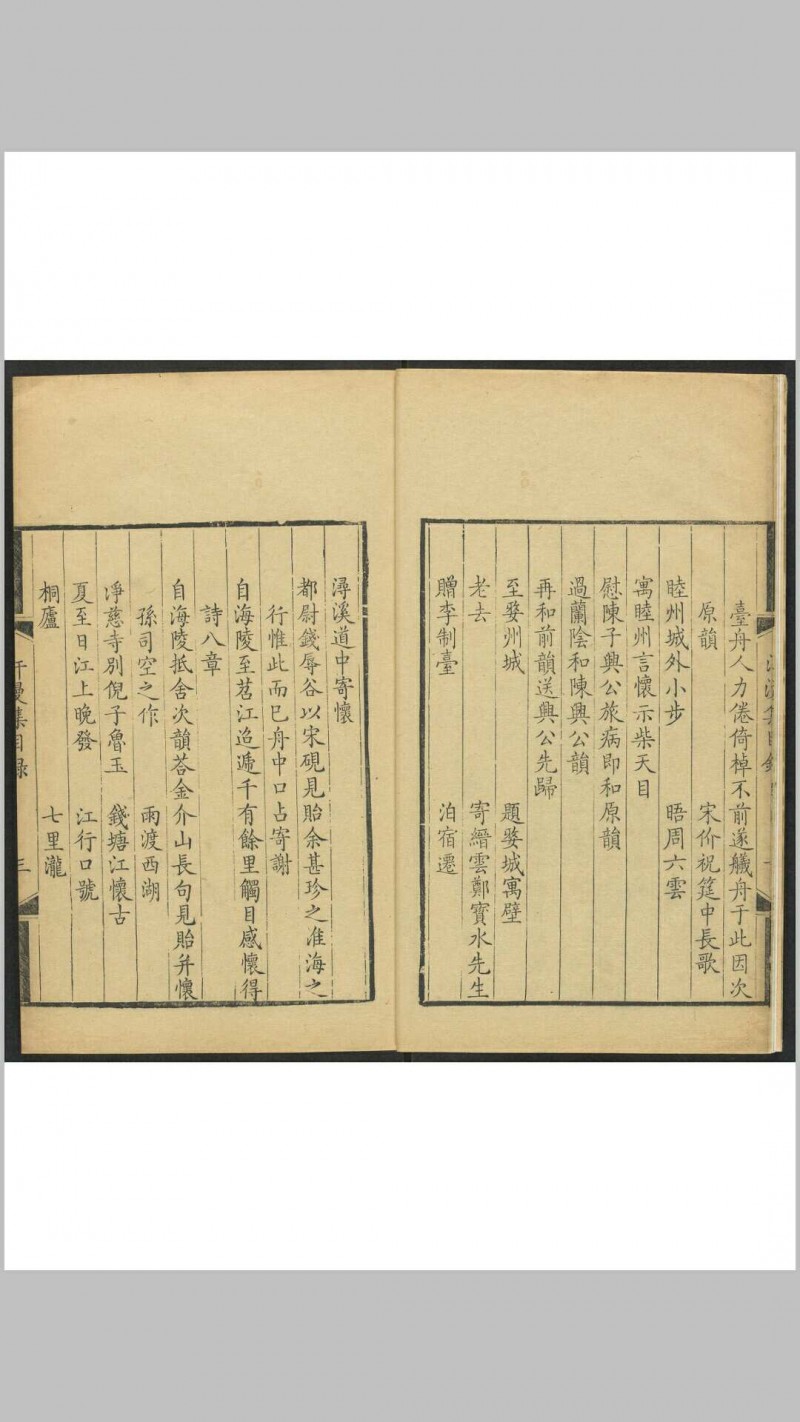 臺舟人力倦倚棹不前遂艤舟于此因次
原韻　宋价祝筵中長歌
睦州城外小步　晤周六雲
寓睦州言懷示柴天目
慰陳子興公旅病即和原韻
過蘭陰和陳興公韻
再和前韻送興公先歸
至婺州城　題婺城寓壁
老去　寄縉雲鄭寳水先生
贈李制臺　泊宿遷
潯溪道中寄懷
都尉錢辱谷以宋硯見貽余甚珍之淮海之
行惟此而已舟中口占寄謝
自海陵至苕江迢遞千有餘里觸目感懷得
詩八章
自海陵抵舍次韻荅金介山長句見貽并懷
孫司空之作　雨渡西湖
淨慈寺別倪子魯玉　錢塘江懷古
夏至日江上晚發　江行口號
桐廬　七里瀧
汗漫集目録　三